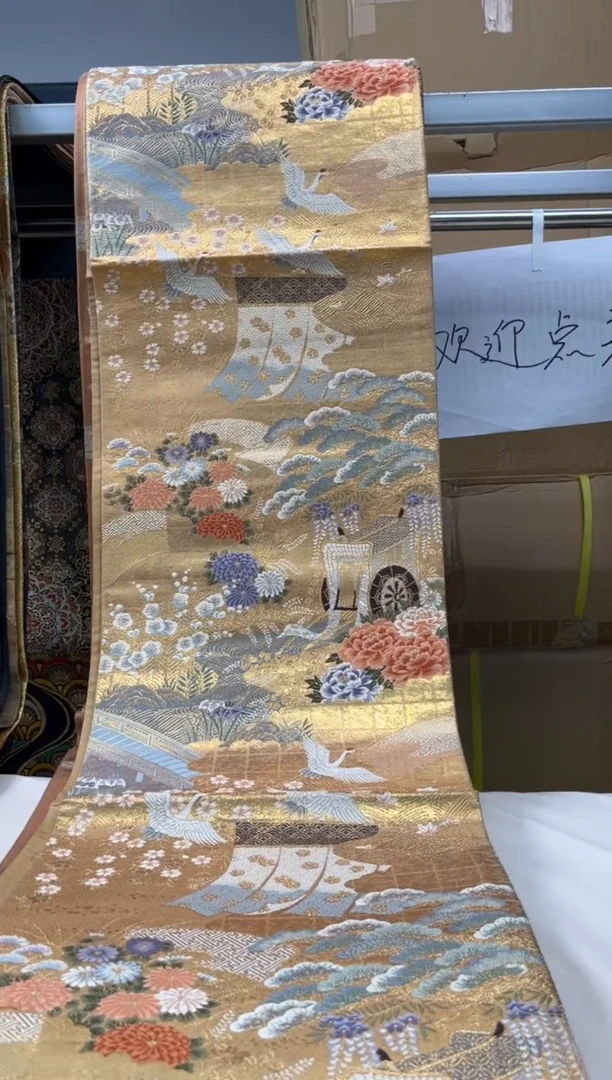 欢迎点